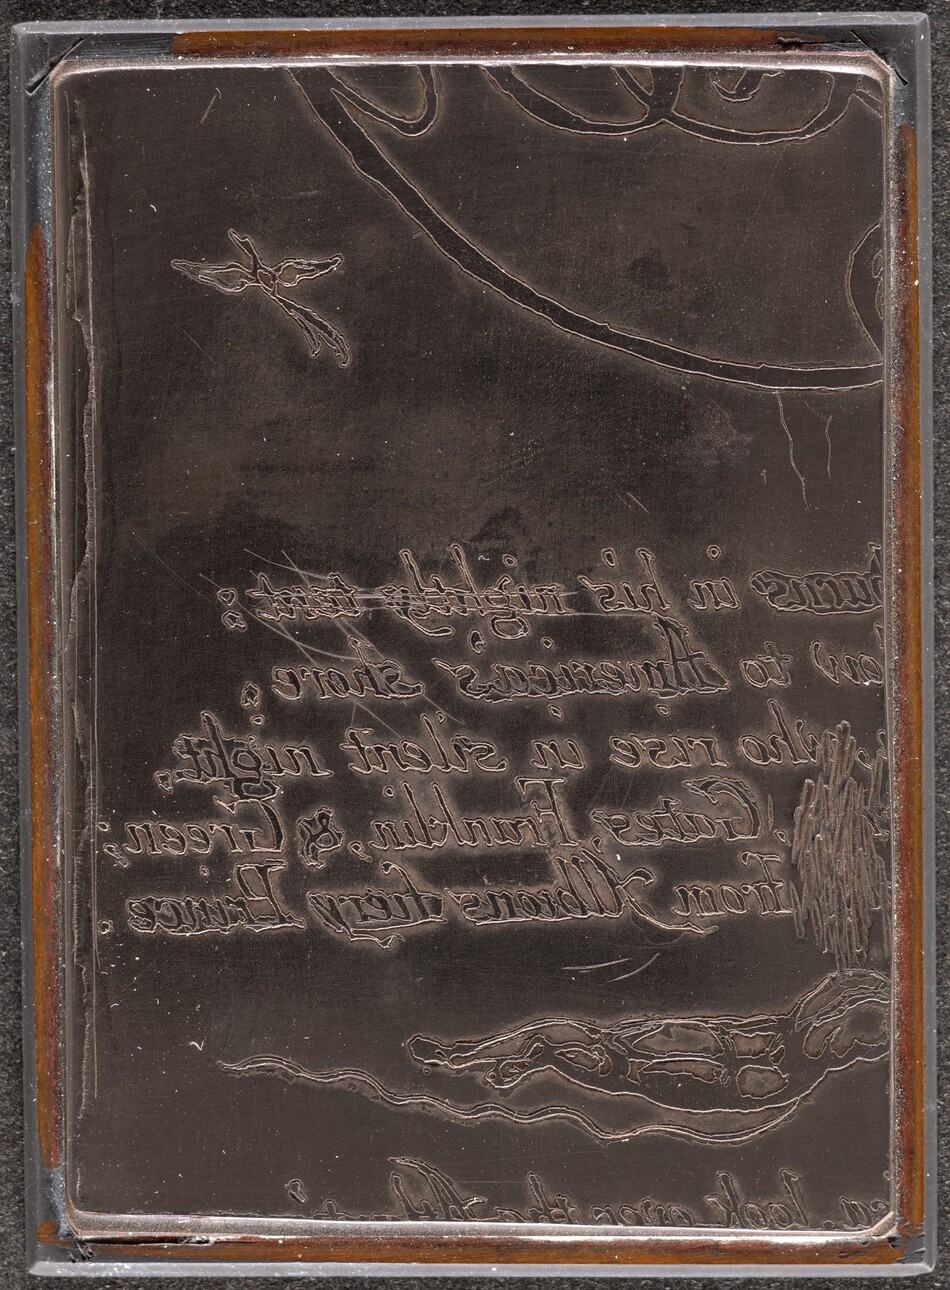 burns in his nightly tent:
low to America's shore;
, who rise in silent night,
, Gates, Franklin, & Green;
from Albions fiery Prince.
look over the